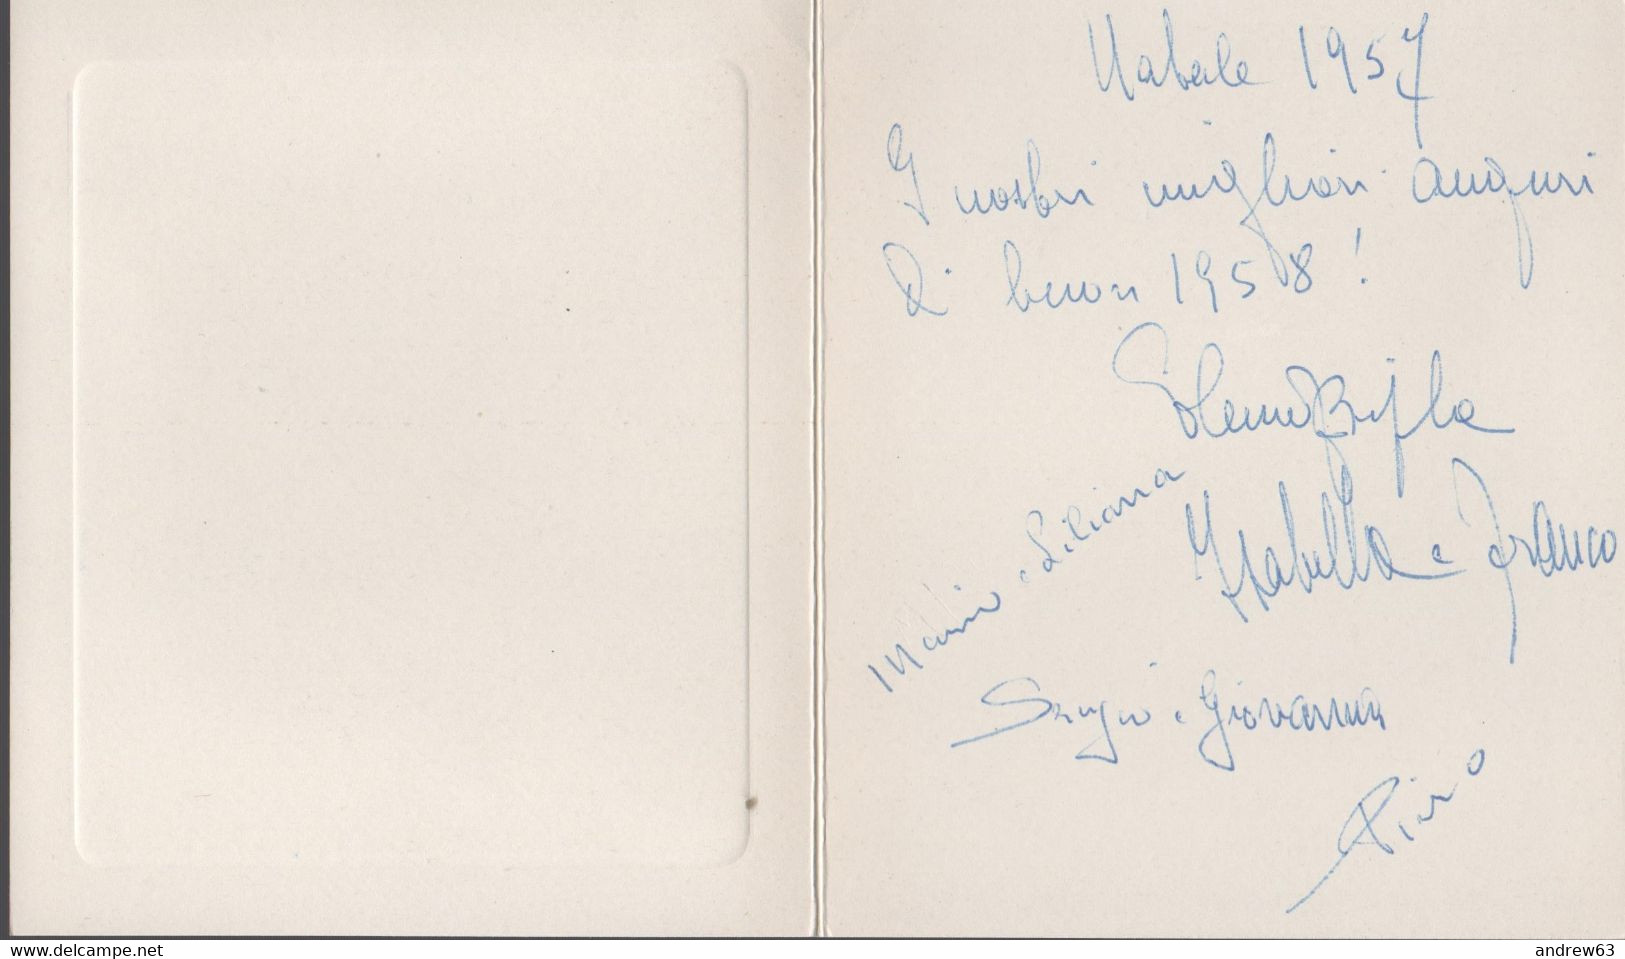 Natale 1957
I nostri migliori auguri
di buon 1958!
Isabella e Franco
Mario e Liliana
Sergio e Giovanna
Piero
www.delcampe.net
andrew63